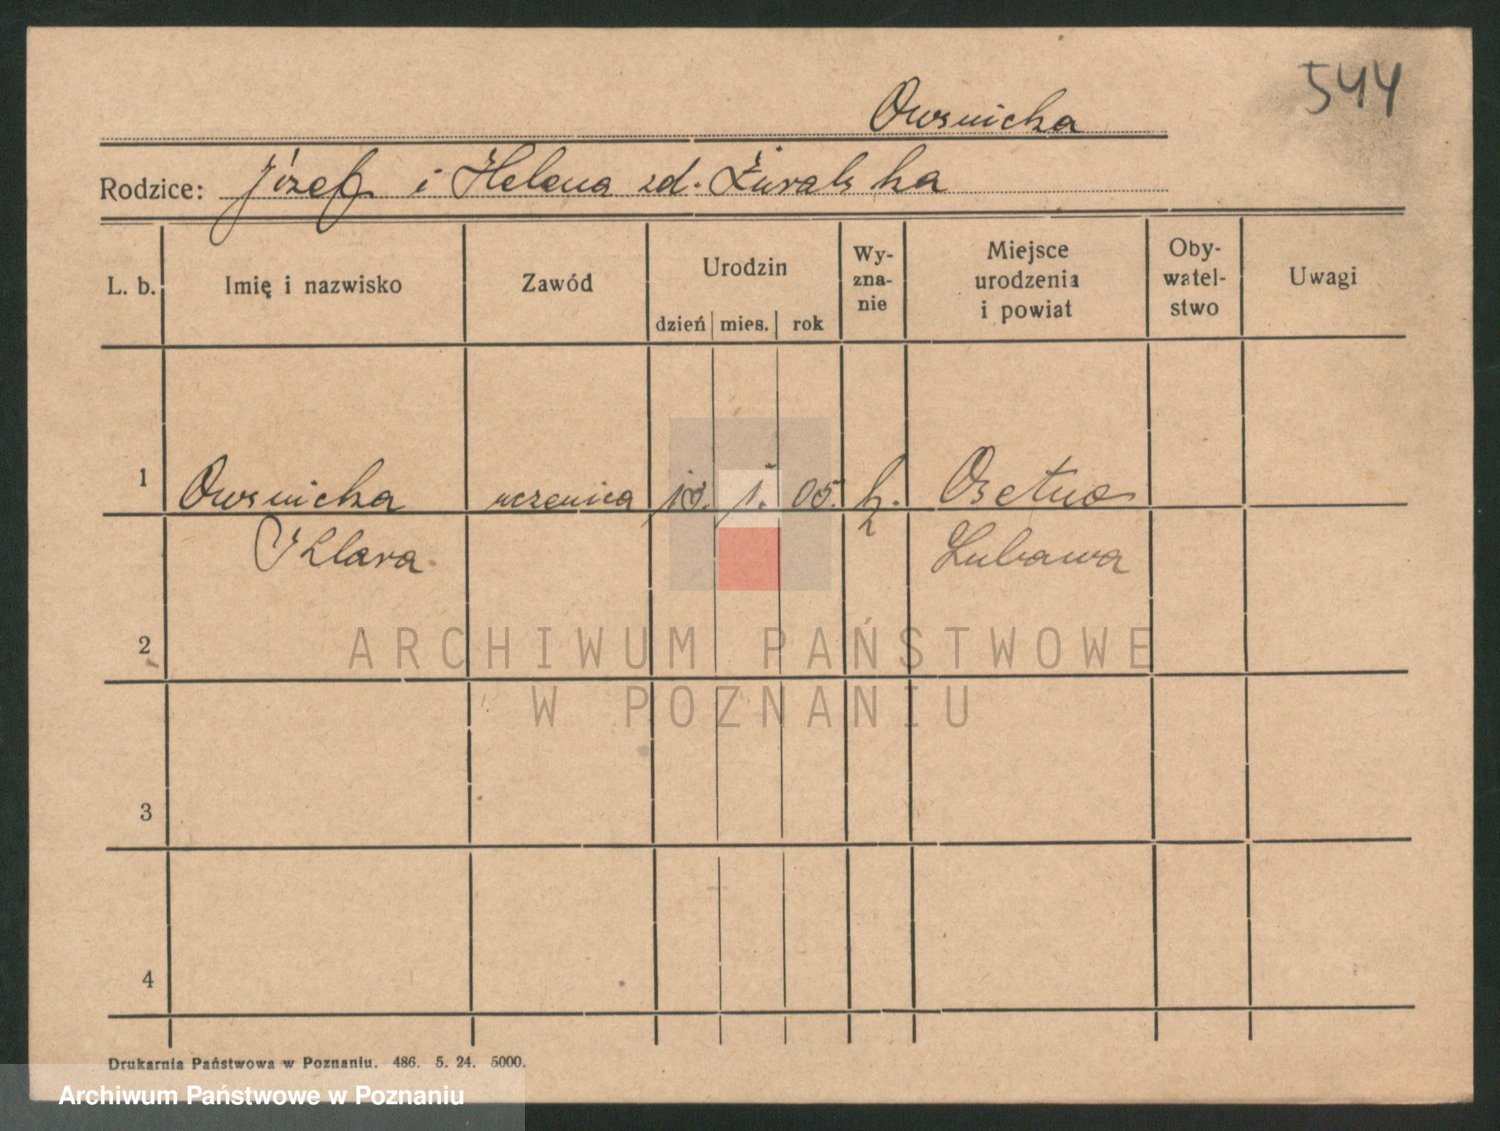 544
Owsnicka
Rodzice: Józef i Helena zd. Żuralska
L. b. Imię i nazwisko Zawód Urodzin dzień mies. rok Wy-zna-nie Miejsce urodzenia i powiat Oby-watel-stwo Uwagi
1 Owsnicka uczenica 1. 05. k. Osetno
Klara Lubawa
2
ARCHIWUM PAŃSTWOWE
W POZNANIU
3
4
Drukarnia Państwowa w Poznaniu. 486. 5. 24. 5000.
Archiwum Państwowe w Poznaniu